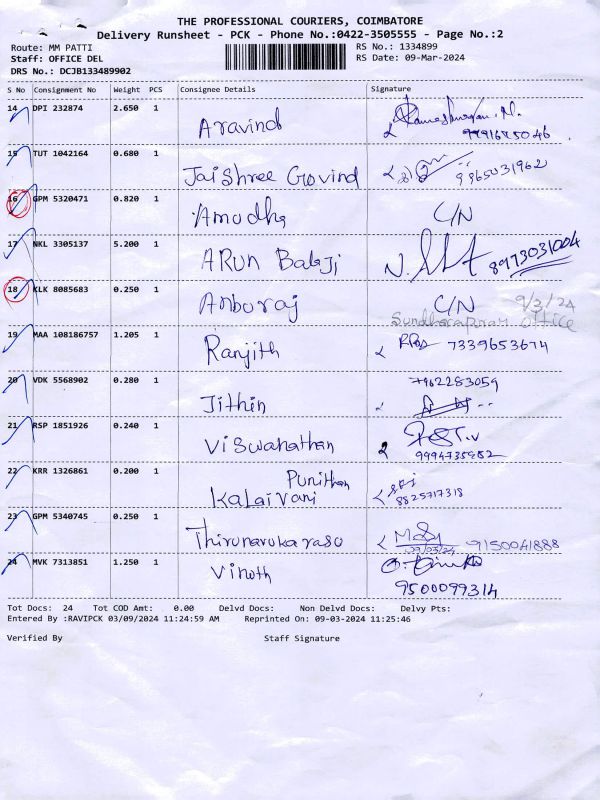 THE PROFESSIONAL COURIERS, COIMBATORE
Delivery Runsheet - PCK - Phone No.:0422-3505555 - Page No.:2
Route: MM PATTI RS No.: 1334899
Staff: OFFICE DEL RS Date: 09-Mar-2024
DRS No.: DCJB133489902
S No Consignment No Weight PCS Consignee Details Signature
14 DPI 232874 2.650 1 Aravind
15 TUT 1042164 0.680 1 Jaishree Govind 9965031962
16 GPM 5320471 0.820 1 Amudha C/N
17 NKL 3305137 5.200 1 ARun Balaji 8973031004
18 KLK 8085683 0.250 1 Anburaj C/N 9/3/24
Office
19 MAA 108186757 1.205 1 Ranjith 7339653674
20 VDK 5568902 0.280 1 Jithin 7962283059
21 RSP 1851926 0.240 1 Viswanathan
22 KRR 1326861 0.200 1 Punithan
Kalaivani 8825717318
23 GPM 5340745 0.250 1 Thirunavukarasu 9150041888
09/03/24
24 MVK 7313851 1.250 1 Vinoth
9500099314
Tot Docs: 24 Tot COD Amt: 0.00 Delvd Docs: Non Delvd Docs: Delvy Pts:
Entered By :RAVIPCK 03/09/2024 11:24:59 AM Reprinted On: 09-03-2024 11:25:46
Verified By Staff Signature